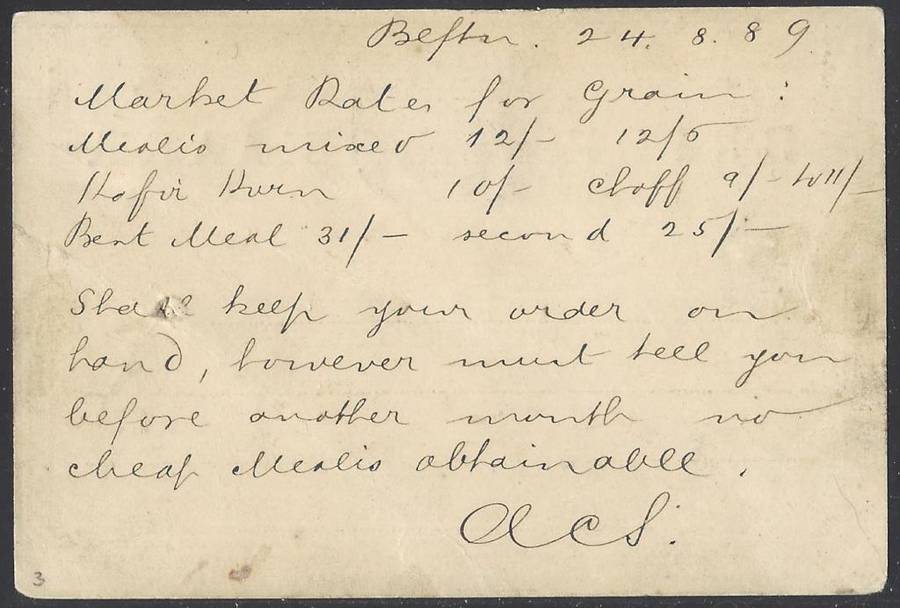 Belftn. 24. 8. 89
Market Rates for Grain :
Mealis mixed 12/- 12/6
Kafir Kurn 10/- Chaff 9/- to 11/-
Best Meal 31/- second 25/-
Shall keep your order on
hand, however must tell you
before another month no
cheap Mealis obtainable.
ACS.
3